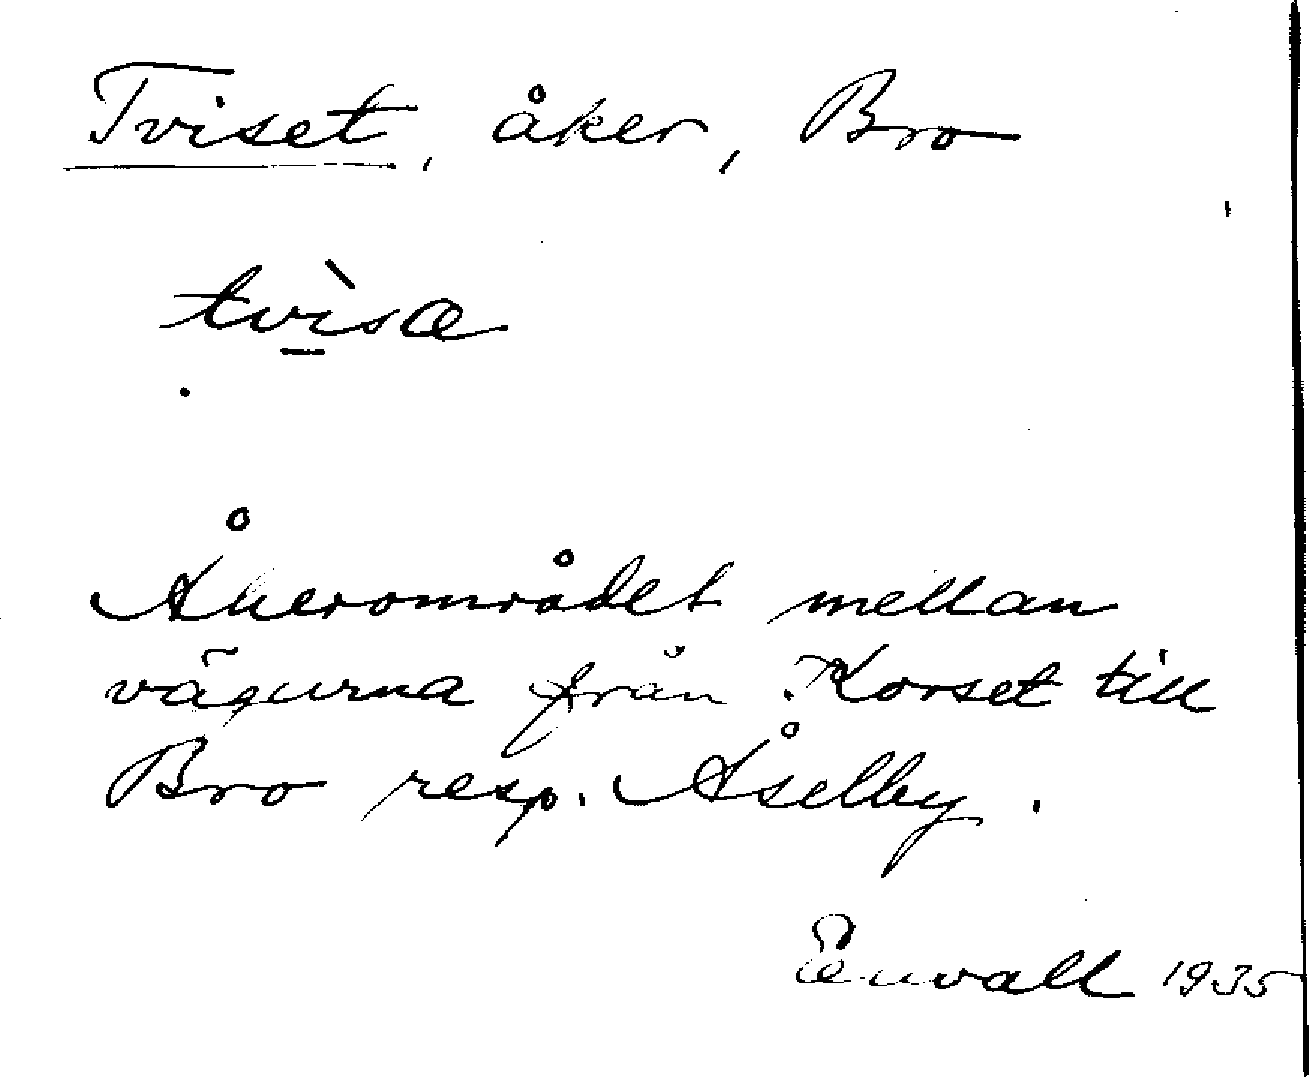 Tviset, åker, Bro
tvìsæ
Åkerområdet mellan
vägarna från Korset till
Bro resp. Åselby.
Envall 1935